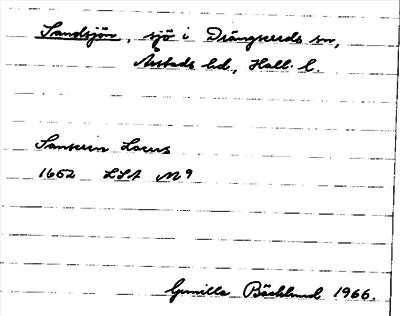 Sandsjön, sjö i Drängsereds sn,
Årstads hd., Hall. l.
Sanseen Lacus
1652 LSA M9
Gunilla Bäcklund 1966.